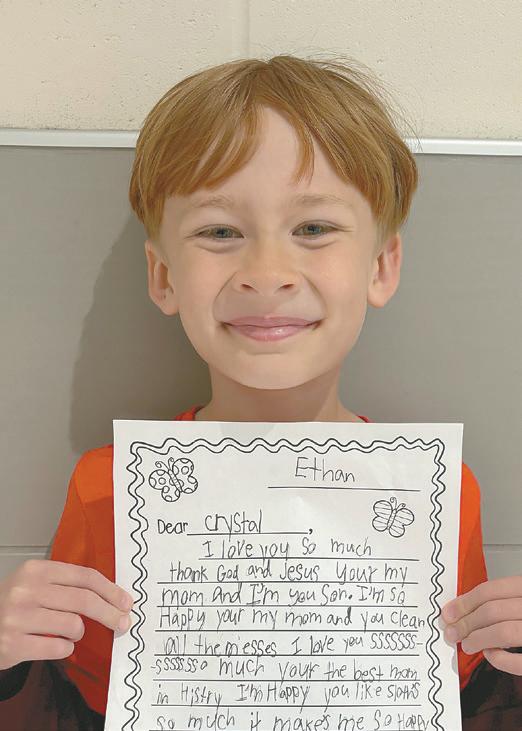 Ethan
Dear crystal,
I love you so much
thank God and Jesus your my
mom and I'm you son. I'm so
Happy your my mom and you clean
all the messes I love you sssssss-
-ssssss o much your the best mom
in Histry I'm Happy you like sloths
so much it makes me so Happy